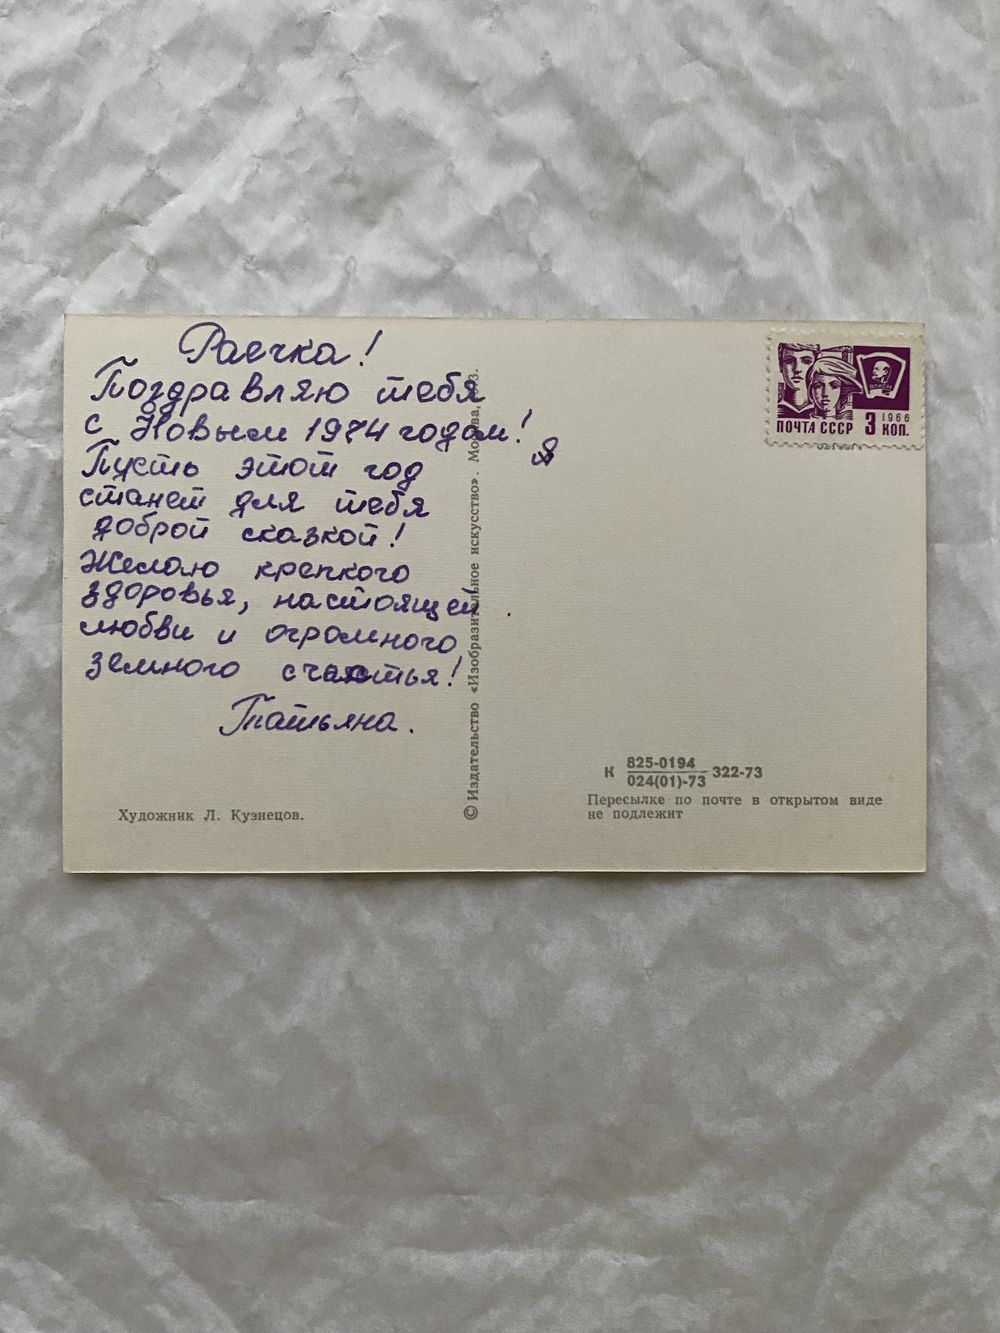 Раечка!
Поздравляю тебя
с Новым 1974 годом!
Я
Пусть этот год
станет для тебя
доброй сказкой!
Желаю крепкого
здоровья, настоящей
любви и огромного
земного счастья!
Татьяна.
Художник Л. Кузнецов.
© Издательство «Изобразительное искусство». Москва,
ВЛКСМ
1966
ПОЧТА СССР 3 КОП.
К 825-0194 322-73
024(01)-73
Пересылке по почте в открытом виде
не подлежит